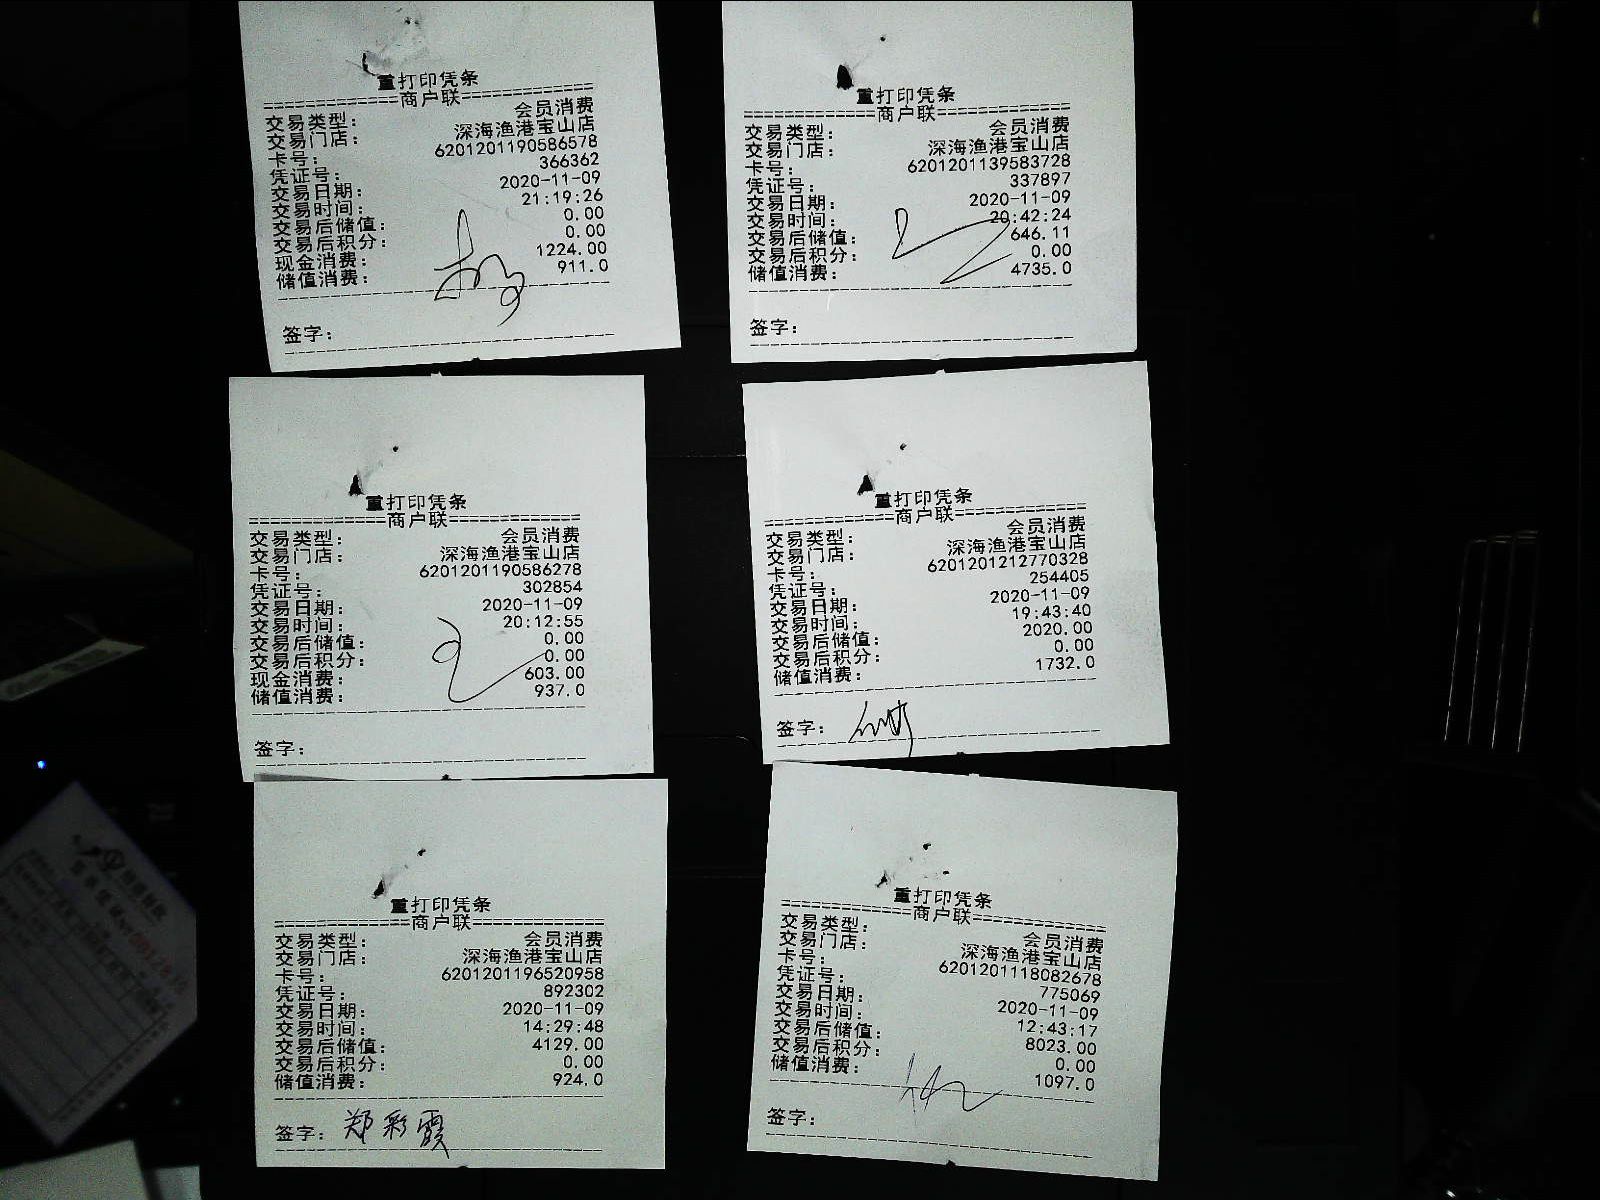 重打印凭条
=============商户联=============
交易类型: 会员消费
交易门店: 深海渔港宝山店
卡号: 6201201190586578
凭证号: 366362
交易日期: 2020-11-09
交易时间: 21:19:26
交易后储值: 0.00
交易后积分: 0.00
现金消费: 1224.00
储值消费: 911.0
签字:
重打印凭条
=============商户联=============
交易类型: 会员消费
交易门店: 深海渔港宝山店
卡号: 6201201139583728
凭证号: 337897
交易日期: 2020-11-09
交易时间: 20:42:24
交易后储值: 646.11
交易后积分: 0.00
储值消费: 4735.0
签字:
重打印凭条
=============商户联=============
交易类型: 会员消费
交易门店: 深海渔港宝山店
卡号: 6201201190586278
凭证号: 302854
交易日期: 2020-11-09
交易时间: 20:12:55
交易后储值: 0.00
交易后积分: 0.00
现金消费: 603.00
储值消费: 937.0
签字:
重打印凭条
=============商户联=============
交易类型: 会员消费
交易门店: 深海渔港宝山店
卡号: 6201201212770328
凭证号: 254405
交易日期: 2020-11-09
交易时间: 19:43:40
交易后储值: 2020.00
交易后积分: 0.00
储值消费: 1732.0
签字:
重打印凭条
=============商户联=============
交易类型: 会员消费
交易门店: 深海渔港宝山店
卡号: 6201201196520958
凭证号: 892302
交易日期: 2020-11-09
交易时间: 14:29:48
交易后储值: 4129.00
交易后积分: 0.00
储值消费: 924.0
签字: 郑彩霞
重打印凭条
=============商户联=============
交易类型: 会员消费
交易门店: 深海渔港宝山店
卡号: 6201201118082678
凭证号: 775069
交易日期: 2020-11-09
交易时间: 12:43:17
交易后储值: 8023.00
交易后积分: 0.00
储值消费: 1097.0
签字: